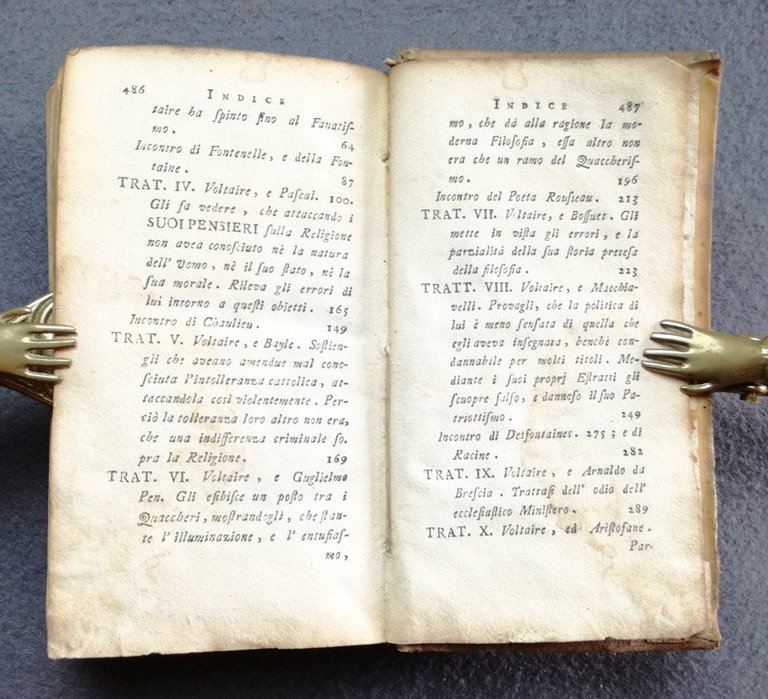 486 INDICE
taire ha ſpinto fino al Fanatiſ-
mo. 64
Incontro di Fontenelle, e della Fon-
taine. 87
TRAT. IV. Voltaire, e Paſcal. 100.
Gli fa vedere, che attaccando i
SUOI PENSIERI ſulla Religione
non avea conoſciuto nè la natura
dell' Vomo, nè il ſuo ſtato, nè la
ſua morale. Rileva gli errori di
lui intorno a queſti obietti. 165
Incontro di Chaulieu. 149
TRAT. V. Voltaire, e Bayle. Soſtien-
gli che aveano amendue mal cono-
ſciuta l'intolleranza cattolica, at-
taccandola così violentemente. Per-
ciò la tolleranza loro altro non era,
che una indifferenza criminale ſo-
pra la Religione. 169
TRAT. VI. Voltaire, e Guglielmo
Pen. Gli eſibiſce un poſto tra i
Quaccheri, moſtrandogli, che ſtan-
te l'illuminazione, e l'entuſiaſ-
mo,
INDICE 487
mo, che dà alla ragione la mo-
derna Filoſofia, eſſa altro non
era che un ramo del Quaccheriſ-
mo. 196
Incontro del Poeta Rouſſeau. 213
TRAT. VII. Voltaire, e Boſſuet. Gli
mette in viſta gli errori, e la
parzialità della ſua ſtoria preteſa
della filoſofia. 223
TRATT. VIII. Voltaire, e Macchia-
velli. Provagli, che la politica di
lui è meno ſenſata di quella che
egli aveva inſegnata, benchè con-
dannabile per molti titoli. Me-
diante i ſuoi proprj Eſtratti gli
ſcuopre falſo, e dannoſo il ſuo Pa-
triottiſmo. 249
Incontro di Desfontaines. 275; e di
Racine. 282
TRAT. IX. Voltaire, e Arnaldo da
Breſcia. Trattaſi dell' odio dell'
eccleſiaſtico Miniſtero. 289
TRAT. X. Voltaire, ed Ariſtofane.
Par-